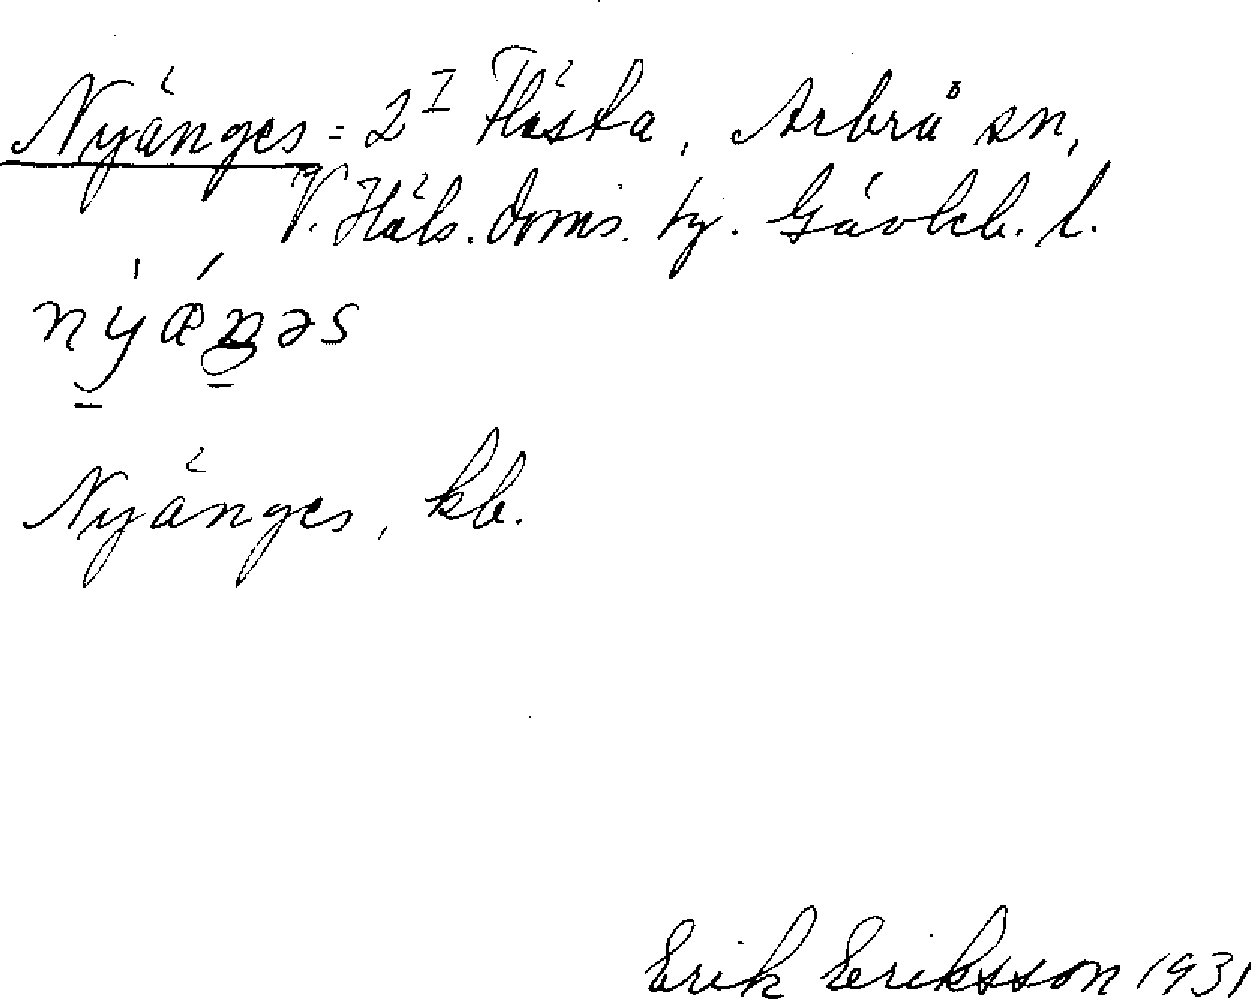 Nyänges = 2 I Flästa, Arbrå sn,
V. Häls. doms. tg. Gävleb. l.
nýǽŋəs
Nyänges, kb.
Erik Eriksson 1931